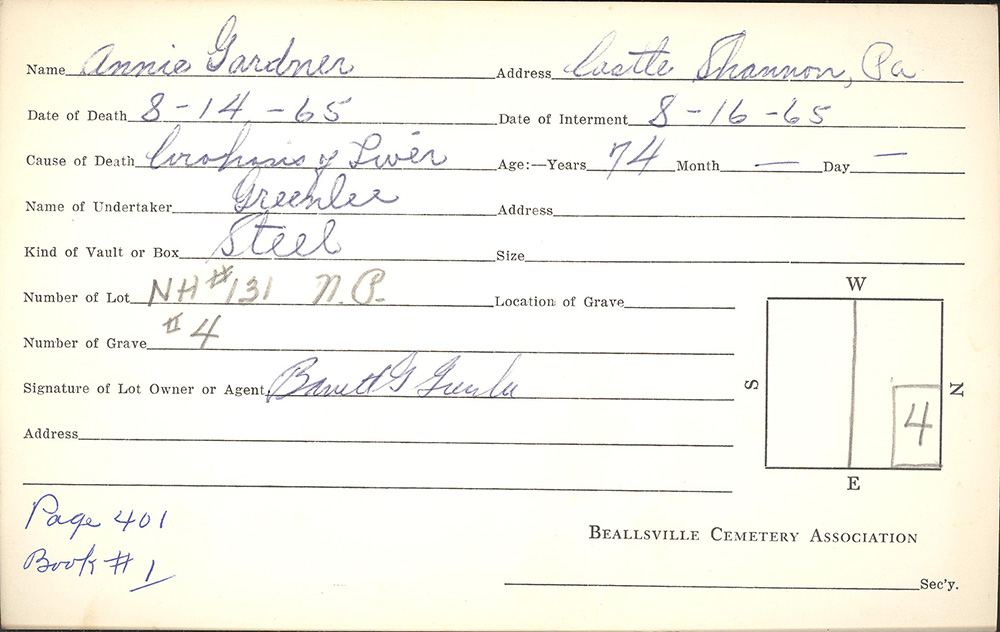 Name Annie Gardner Address Castle Shannon, Pa.
Date of Death 8-14-65 Date of Interment 8-16-65
Cause of Death Cirohsis of Liver Age:—Years 74 Month — Day —
Name of Undertaker Greenlee Address
Kind of Vault or Box Steel Size
Number of Lot NH #131 N.P. Location of Grave
Number of Grave #4
Signature of Lot Owner or Agent. Barrett G Greenlee
Address
W
S
N
4
E
Page 401
Book #1
BEALLSVILLE CEMETERY ASSOCIATION
Sec'y.